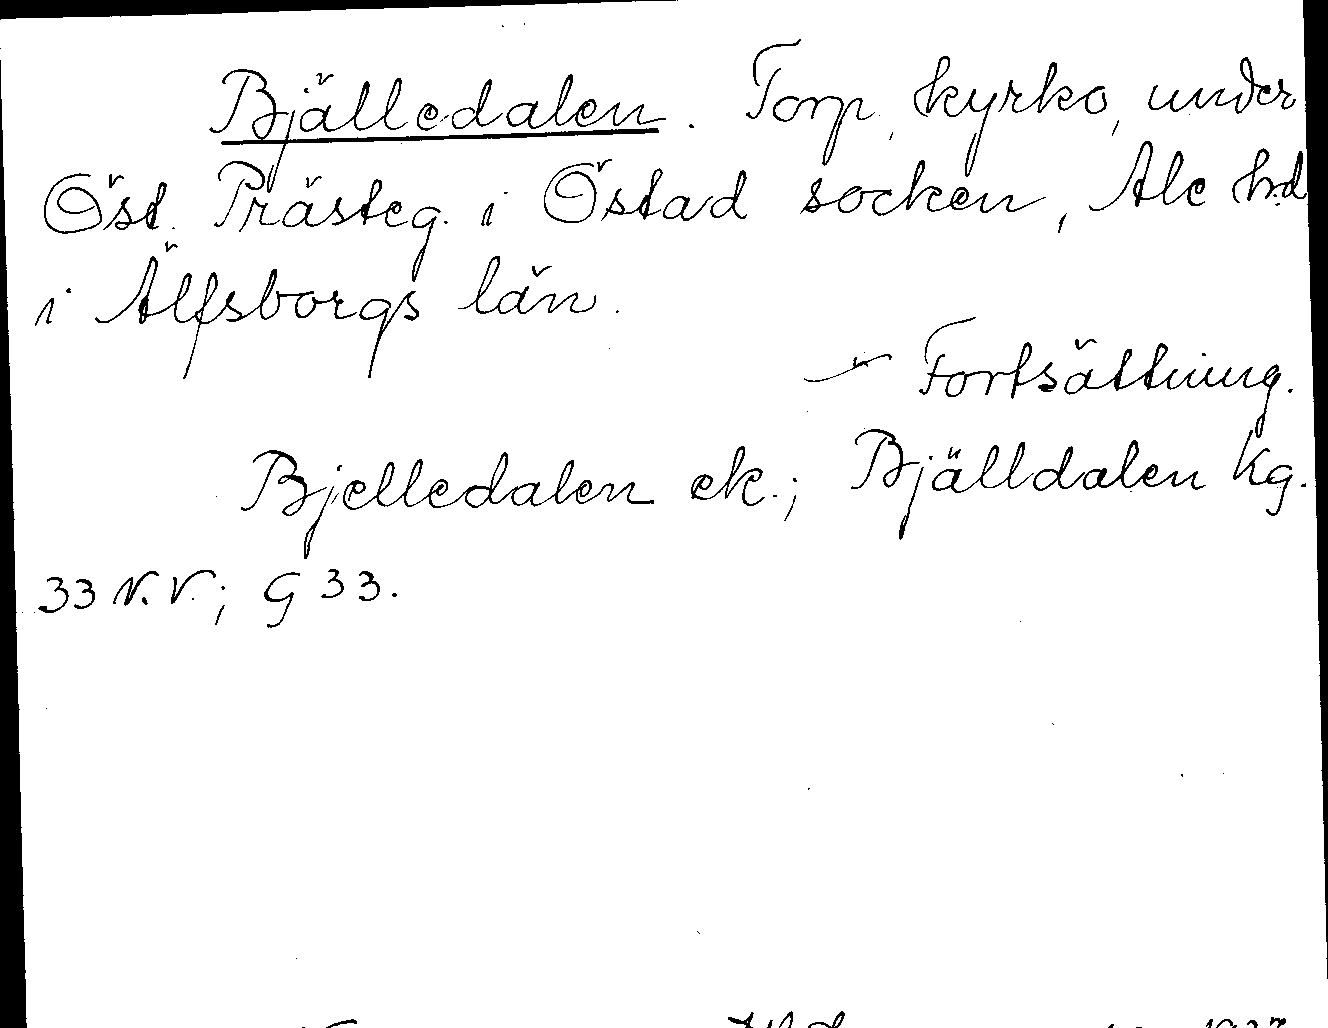 Bjälledalen. Torp, kyrko, under
Öst. Prästeg. i Östad socken, Ale hd
i Älfsborgs län.
Fortsättning.
Bjelledalen ek.; Bjälldalen kg.
33 N.V.; G 33.